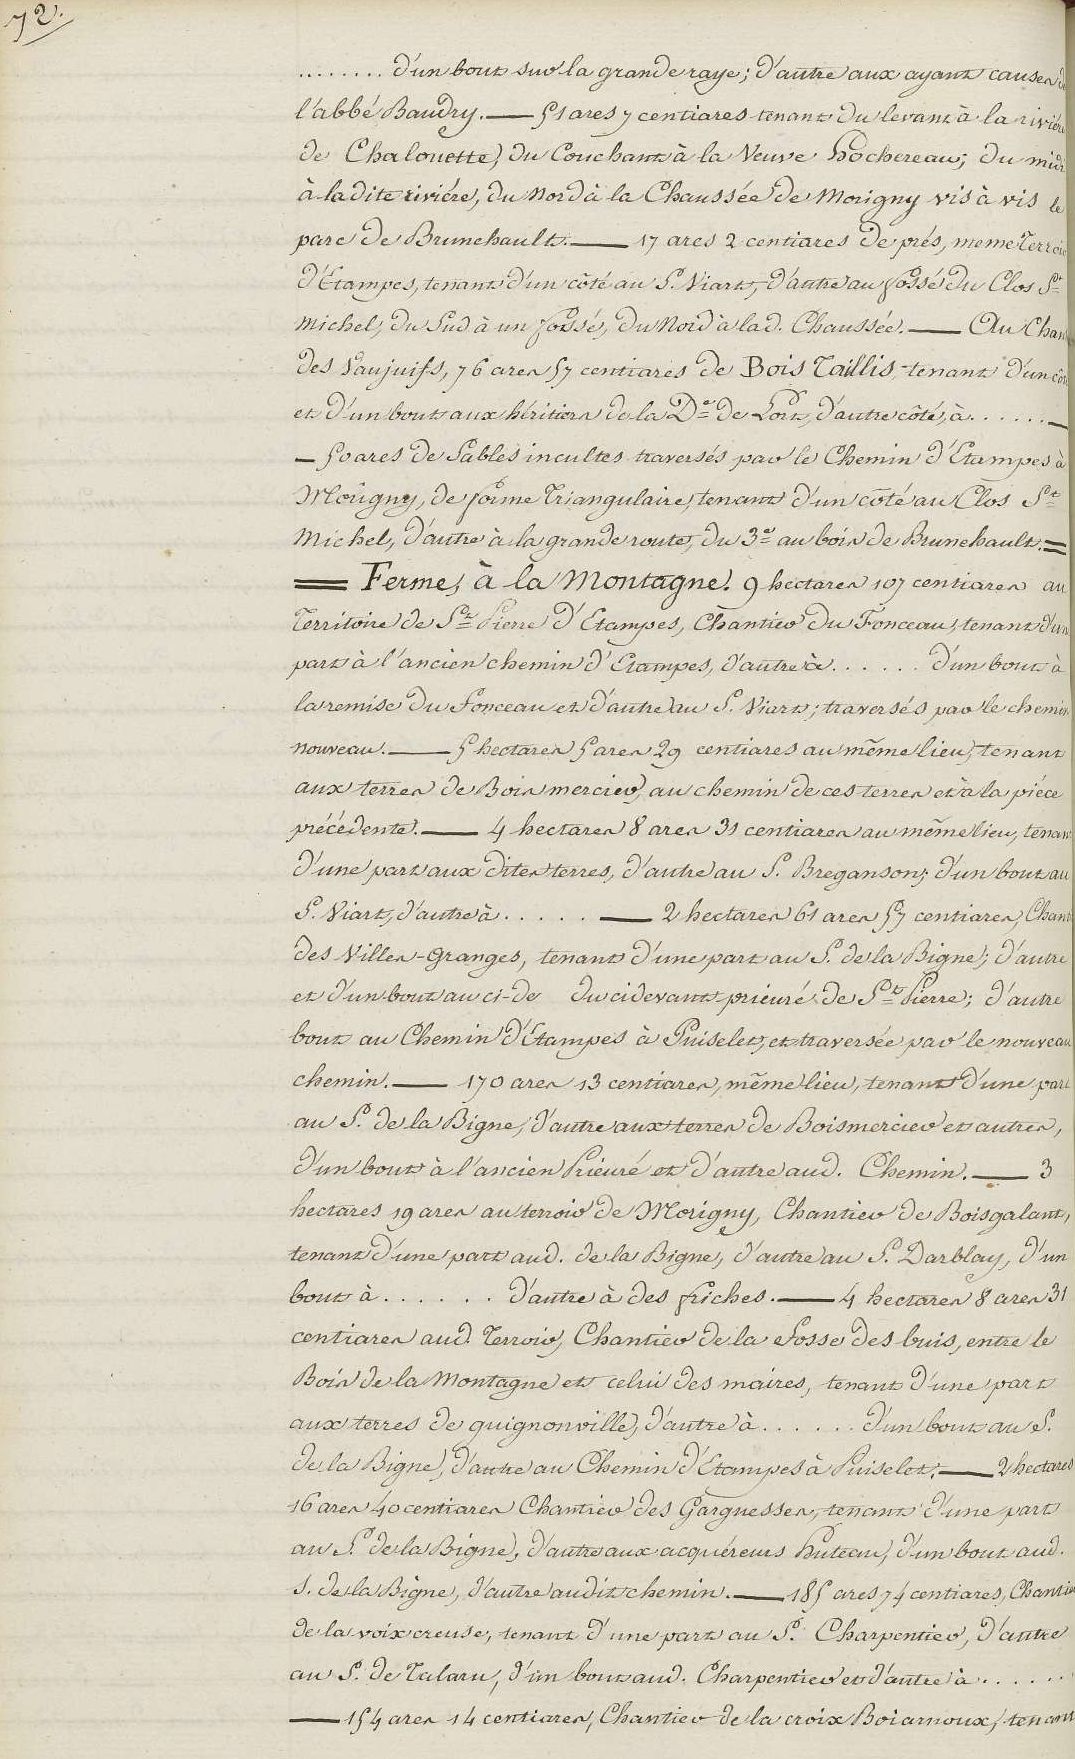 72.
........ d'un bout sur la grande raye; d'autre aux ayant causes de
l'abbé Baudry. — 51 ares 7 centiares tenant du levant à la rivière
de Chalouette, du Couchant à la Veuve Hochereau; du midi
à la dite rivière, du Nord à la Chaussée de Morigny vis à vis le
parc de Brunehault. — 17 ares 2 centiares de prés, meme Terroir
d'Étampes, tenant d'un côté au S. Viart, d'autre au fossé du Clos St
Michel, du Sud à un fossé, du Nord à la d. Chaussée. — Au Chan
des Vaujuifs, 76 ares 57 centiares de Bois Taillis tenant d'un côté
et d'un bout aux héritiers de la De de Port, d'autre côté, à...... —
— 50 ares de Sables incultes traversés par le Chemin d'Etampes à
Morigny, de forme Triangulaire, tenant d'un côté au Clos St
Michel, d'autre à la grande route, du 3e au bois de Brunehault. =
= Ferme, à la Montagne. 9 hectares 107 centiares au
Territoire de St Pierre d'Etampes, Chantier du Fonceau, tenant d'un
part à l'ancien chemin d'Etampes, d'autre à...... d'un bout à
la remise du Fonceau et d'autre au S. Viart; traversés par le chemin
nouveau. — 5 hectares 5 ares 29 centiares au même lieu, tenant
aux terres de Bois mercier, au chemin de ces terres et à la pièce
précédente. — 4 hectares 8 ares 31 centiares au même lieu, tenant
d'une part aux dites terres, d'autre au S. Breganson; d'un bout au
S. Viart, d'autre à..... — 2 hectares 61 ares 57 centiares, Chant
des Villes-Granges, tenant d'une part au S. de la Bigne; d'autre
et d'un bout au ci-de du cidevant prieuré de St Pierre; d'autre
bout au Chemin d'Etampes à Puiselet, et traversée par le nouveau
chemin. — 170 ares 13 centiares, même lieu, tenant d'une part
au S. de la Bigne, d'autre aux terres de Boismercier et autres,
d'un bout à l'ancien Prieuré et d'autre aud. Chemin. — 3
hectares 19 ares au terroir de Morigny, Chantier de Boisgalant,
tenant d'une part aud. de la Bigne, d'autre au S. Darblay, d'un
bout à...... d'autre à des friches. — 4 hectares 8 ares 31
centiares aud. Terroir, Chantier de la Fosse des buis, entre le
Bois de la Montagne et celui des maires, tenant d'une part
aux terres de guignonville, d'autre à...... d'un bout au S.
de la Bigne, d'autre au Chemin d'Etampes à Puiselet. — 2 hectares
16 ares 40 centiares Chantier des Garguesses, tenant d'une part
au S. de la Bigne, d'autre aux acquéreurs Huteau, d'un bout aud.
S. de la Bigne, d'autre audit chemin. — 185 ares 74 centiares, Chantier
de la voix creuse, tenant d'une part au S. Charpentier, d'autre
au S. de Talaru, d'un bout aud. Charpentier et d'autre à......
— 154 ares 14 centiares, Chantier de la croix Boiarnoux, tenant